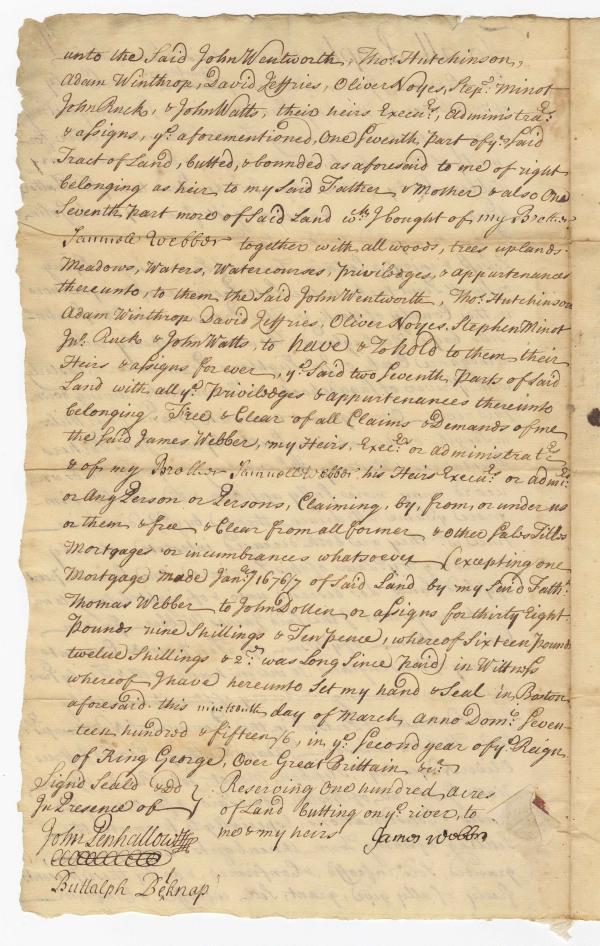 unto the Said John Wentworth, Thos. Hutchinson,
Adam Winthrop, David Jeffries, Oliver Noyes, Stepn. Minot
John Ruck, & John Watts, their heirs Execrs, Administrars
& assigns, ye aforementioned, One Seventh part of ye Said
Tract of Land, butted, & bounded as aforesaid to me of right
belonging as heir to my Said Father & Mother & also One
Seventh part more of Said Land wch I bought of my Brother
Samuell Webber together with all woods, trees uplands
Meadows, Waters, Watercourses, priviledges, & appurtenances
thereunto, to them the Said John Wentworth, Thos. Hutchinson
Adam Winthrop David Jeffries, Oliver Noyes, Stephen Minot
Jno. Ruck & John Watts, to have & to hold to them their
Heirs & assigns for ever, ye Said two Seventh parts of Said
Land with all ye priviledges & appurtenances thereunto
belonging. Free & Clear of all Claims & Demands of me
the Said James Webber, my Heirs, Execrs or administratrs
& of my Brother Samuell Webber his Heirs Execurs or admrs
or Any Person or Persons, Claiming, by, from, or under us
or them & free & Clear from all former & other Sales Titles
Mortgages or incumbrances whatsoever (excepting one
Mortgage made Janry 1676/7 of Said Land by my Said Fathr
Thomas Webber to John Dollen or assigns for thirty Eight
pounds nine Shillings & Ten pence, whereof Sixteen pounds
twelve Shillings & 2d was Long Since paid) in Wittness
whereof I have hereunto Set my hand & Seal in Boston
aforesaid this nineteenth day of March anno Domi Seven-
teen hundred & fifteen/6, in ye Second year of ye Reign
of King George, Over Great Brittain &c.
Sign'd Seald & dd } Reserving One hundred acres
In Presence of } of Land butting on ye river, to
John Penhallow me & my heirs James Webber
Buttalph Belknap